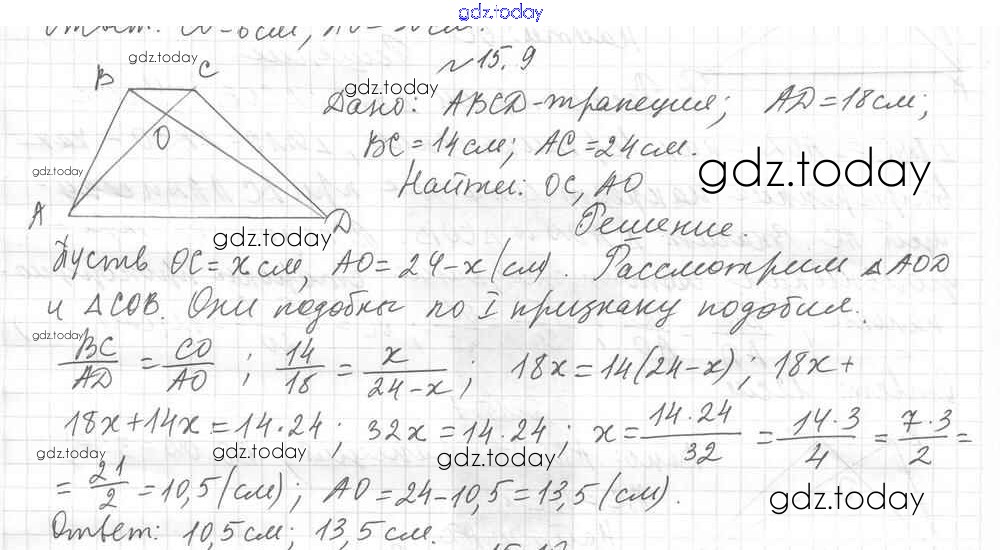 gdz.today
Ответ: см, см.
gdz.today
№15.9
B C
gdz.today
Дано: ABCD-трапеция; AD=18см;
O
BC=14см; AC=24см.
gdz.today
gdz.today
Найти: OC, AO
A D
Решение.
gdz.today
Пусть OC=x см, AO=24-x(см). Рассмотрим △AOD
и △COB. Они подобны по I признаку подобия.
gdz.today
BC/AD = CO/AO ; 14/18 = x/24-x ; 18x=14(24-x); 18x+
gdz.today
18x+14x=14·24; 32x=14·24; x= 14·24/32 = 14·3/4 = 7·3/2 =
gdz.today gdz.today gdz.today
= 21/2 =10,5(см); AO=24-10,5=13,5(см).
gdz.today
Ответ: 10,5см; 13,5см.
gdz.today